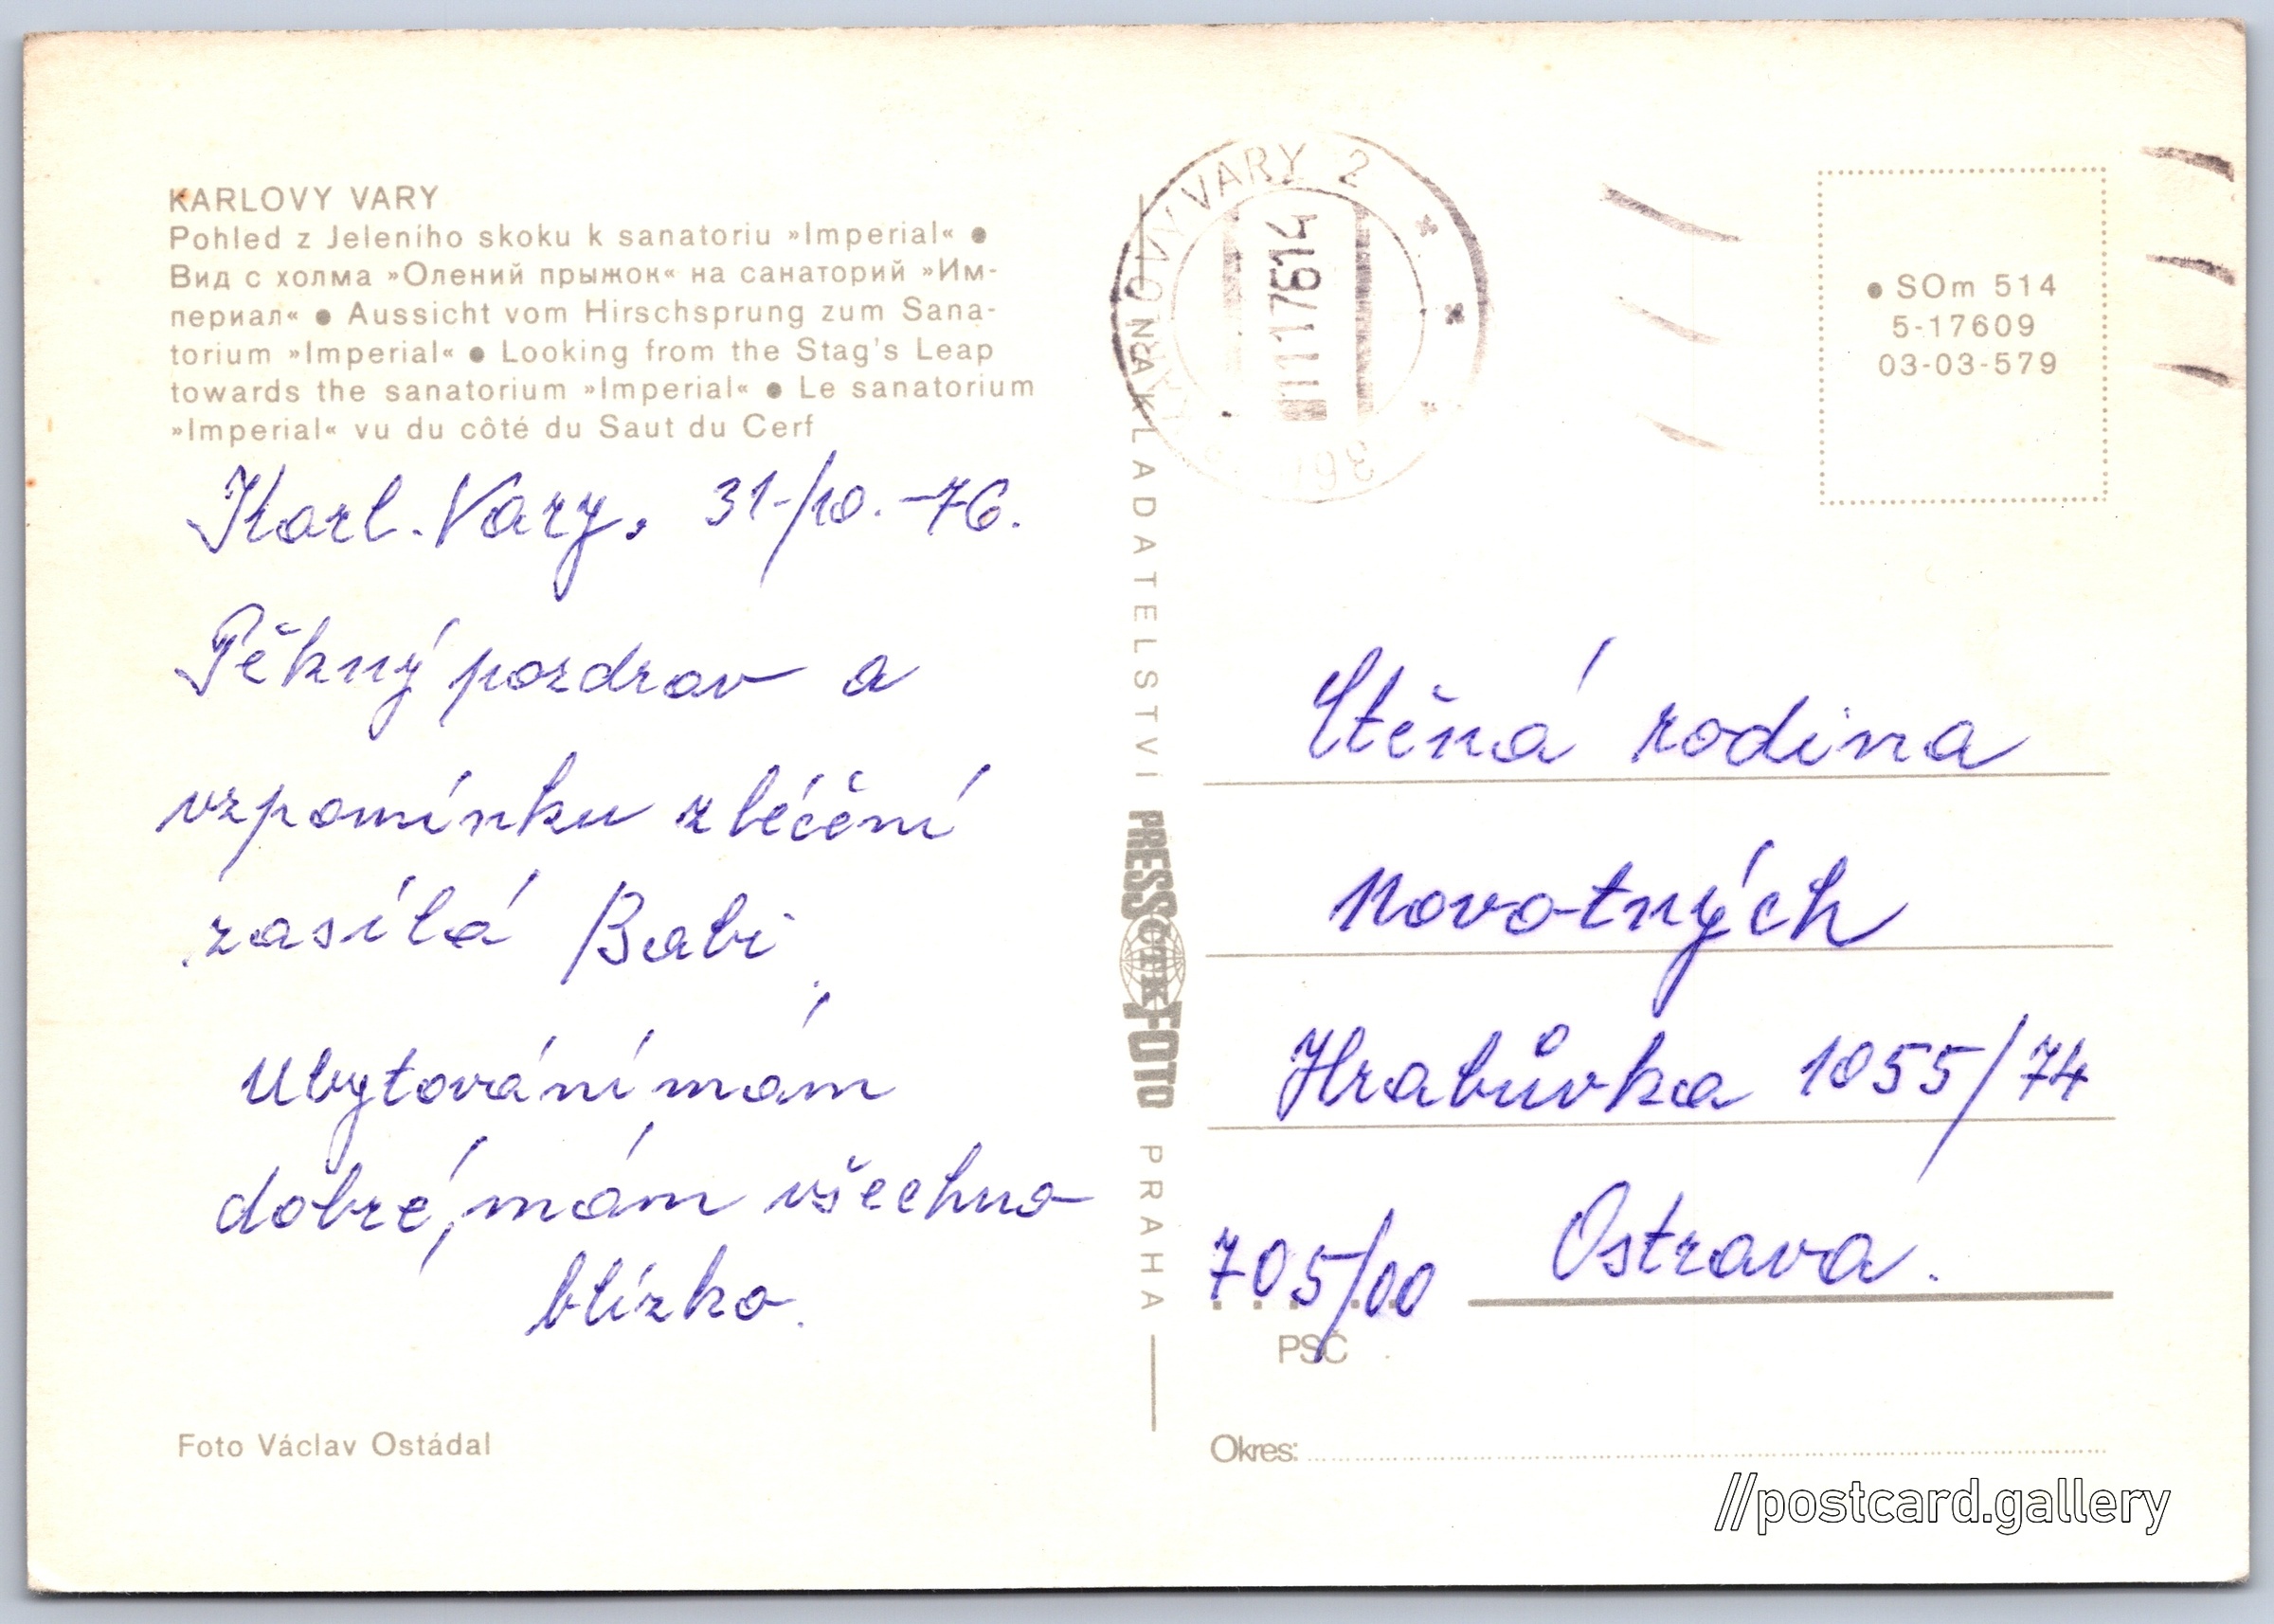 KARLOVY VARY
Pohled z Jeleního skoku k sanatoriu »Imperial« ●
Вид с холма »Олений прыжок« на санаторий »Им-
периал« ● Aussicht vom Hirschsprung zum Sana-
torium »Imperial« ● Looking from the Stag's Leap
towards the sanatorium »Imperial« ● Le sanatorium
»Imperial« vu du côté du Saut du Cerf
Karl. Vary. 31-/10.-76.
Pěkný pozdrav a
vzpomínku z léčení
zasílá Babi.
Ubytování mám
dobré, mám všechno
blízko.
Foto Václav Ostádal
NAKLADATELSTVÍ PRESSFOTO PRAHA
ČTK
KARLOVY VARY 2
● SOm 514
5-17609
03-03-579
Ctěná rodina
Novotných
Hrabůvka 1055/74
705/00 Ostrava.
PSČ
Okres:
//postcard.gallery